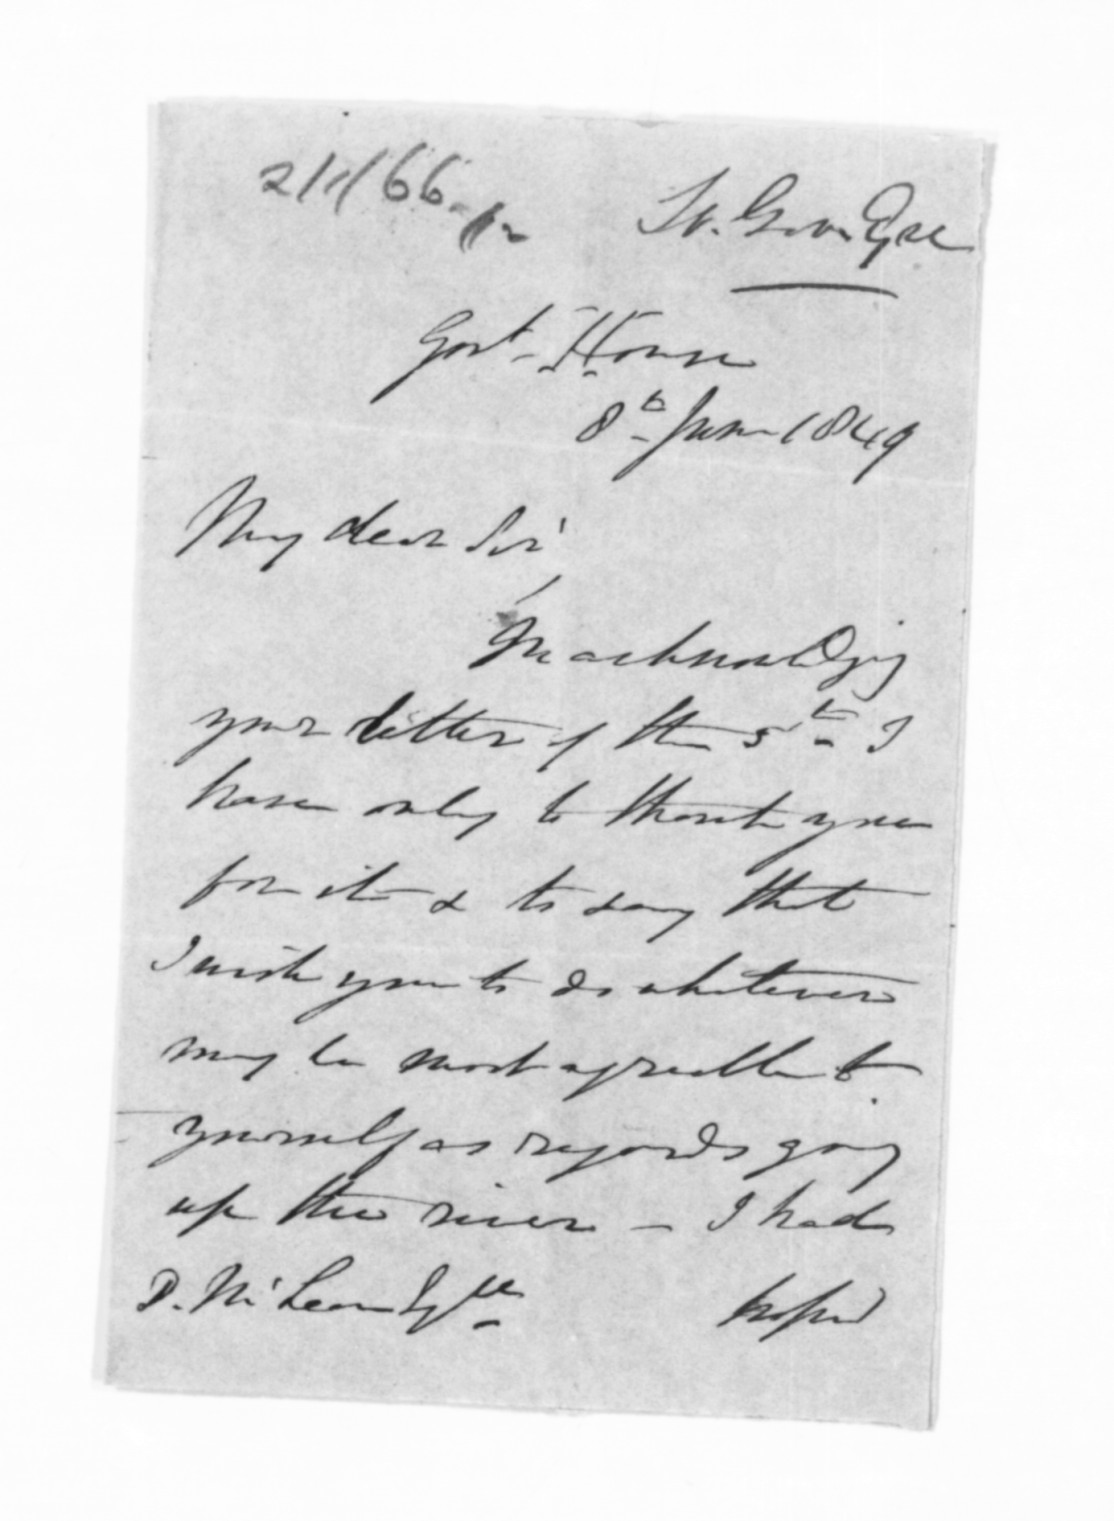 Lt. Gov. Eyre
Govt. House
8th June 1849
My dear Sir,
In acknowledging
your letter of the 5th I
have only to thank you
for it & to say that
I wish you to do whatever
may be most agreeable to
yourself as regards going
up the river - I had
D. McLean Esqre
hoped